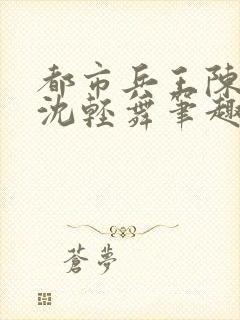 都市兵王陳
沈輕舞筆趣
蒼夢